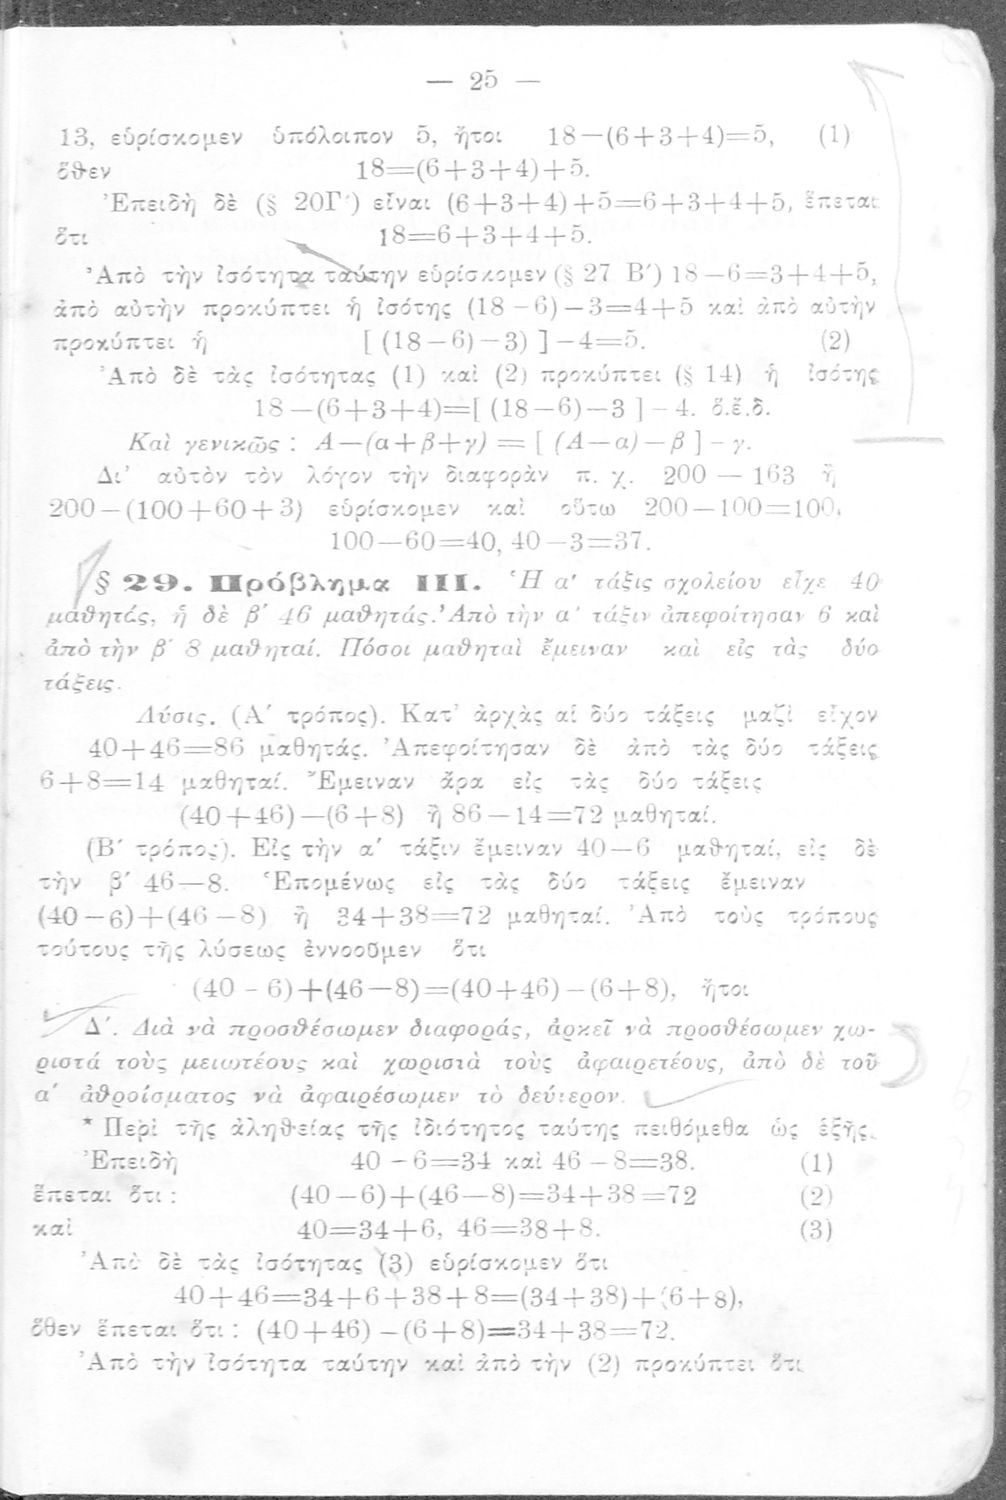 — 25 —
13, εὑρίσκομεν ὑπόλοιπον 5, ἤτοι 18—(6+3+4)=5, (1)
ὅθεν 18=(6+3+4)+5.
Ἐπειδὴ δὲ (§ 20Γ΄) εἶναι (6+3+4)+5=6+3+4+5, ἕπεται
ὅτι 18=6+3+4+5.
Ἀπὸ τὴν ἰσότητα ταύτην εὑρίσκομεν (§ 27 Β΄) 18—6=3+4+5,
ἀπὸ αὐτὴν προκύπτει ἡ ἰσότης (18—6)—3=4+5 καὶ ἀπὸ αὐτὴν
προκύπτει ἡ [ (18—6)—3) ]—4=5. (2)
Ἀπὸ δὲ τὰς ἰσότητας (1) καὶ (2) προκύπτει (§ 14) ἡ ἰσότης
18—(6+3+4)=[ (18—6)—3 ]—4. ὅ.ἔ.δ.
Καὶ γενικῶς : Α—(α+β+γ) = [ (Α—α)—β ]—γ.
Δι' αὐτὸν τὸν λόγον τὴν διαφορὰν π. χ. 200 — 163 ἢ
200—(100+60+3) εὑρίσκομεν καὶ οὕτω 200—100=100,
100—60=40, 40—3=37.
§ 29. Πρόβλημα ΙΙΙ. Ἡ α΄ τάξις σχολείου εἶχε 40
μαθητάς, ἡ δὲ β΄ 46 μαθητάς. Ἀπὸ τὴν α΄ τάξιν ἀπεφοίτησαν 6 καὶ
ἀπὸ τὴν β΄ 8 μαθηταί. Πόσοι μαθηταὶ ἔμειναν καὶ εἰς τὰς δύο
τάξεις.
Λύσις. (Α΄ τρόπος). Κατ' ἀρχὰς αἱ δύο τάξεις μαζὶ εἶχον
40+46=86 μαθητάς. Ἀπεφοίτησαν δὲ ἀπὸ τὰς δύο τάξεις
6+8=14 μαθηταί. Ἔμειναν ἄρα εἰς τὰς δύο τάξεις
(40+46)—(6+8) ἢ 86—14=72 μαθηταί.
(Β΄ τρόπος). Εἰς τὴν α΄ τάξιν ἔμειναν 40—6 μαθηταί, εἰς δὲ
τὴν β΄ 46—8. Ἑπομένως εἰς τὰς δύο τάξεις ἔμειναν
(40—6)+(46—8) ἢ 34+38=72 μαθηταί. Ἀπὸ τοὺς τρόπους
τούτους τῆς λύσεως ἐννοοῦμεν ὅτι
(40—6)+(46—8)=(40+46)—(6+8), ἤτοι
Δ΄. Διὰ νὰ προσθέσωμεν διαφοράς, ἀρκεῖ νὰ προσθέσωμεν χω-
ριστά τοὺς μειωτέους καὶ χωριστὰ τοὺς ἀφαιρετέους, ἀπὸ δὲ τοῦ
α΄ ἀθροίσματος νὰ ἀφαιρέσωμεν τὸ δεύτερον.
* Περὶ τῆς ἀληθείας τῆς ἰδιότητος ταύτης πειθόμεθα ὡς ἑξῆς.
Ἐπειδὴ 40—6=34 καὶ 46—8=38. (1)
ἕπεται ὅτι : (40—6)+(46—8)=34+38=72 (2)
καὶ 40=34+6, 46=38+8. (3)
Ἀπὸ δὲ τὰς ἰσότητας (3) εὑρίσκομεν ὅτι
40+46=34+6+38+8=(34+38)+(6+8),
ὅθεν ἕπεται ὅτι : (40+46)—(6+8)=34+38=72.
Ἀπὸ τὴν ἰσότητα ταύτην καὶ ἀπὸ τὴν (2) προκύπτει ὅτι